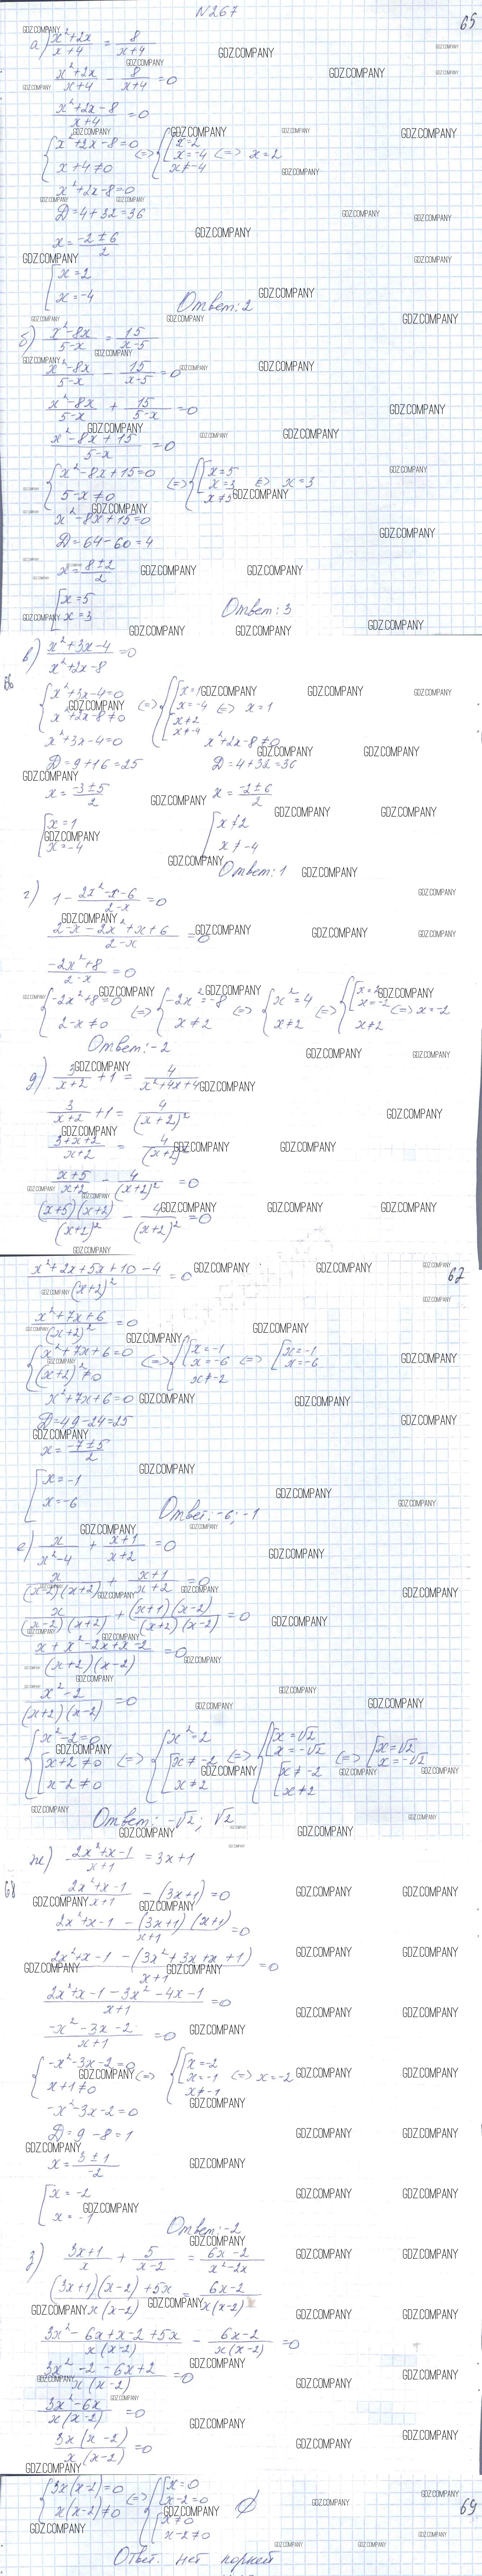 N267
65
а) (x²+2x)/(x+4) = 8/(x+4)
(x²+2x)/(x+4) - 8/(x+4) = 0
(x²+2x-8)/(x+4) = 0
{x²+2x-8=0 {[x=2
x+4≠0 <=> x=-4 <=> x=2
x≠-4
x²+2x-8=0
D=4+32=36
x=(-2±6)/2
[x=2
x=-4
Ответ: 2
б) (x²-8x)/(5-x) = 15/(x-5)
(x²-8x)/(5-x) - 15/(x-5) = 0
(x²-8x)/(5-x) + 15/(5-x) = 0
(x²-8x+15)/(5-x) = 0
{x²-8x+15=0 {[x=5
5-x≠0 <=> x=3 <=> x=3
x≠5
x²-8x+15=0
D=64-60=4
x=(8±2)/2
[x=5
x=3
Ответ: 3
в) (x²+3x-4)/(x²+2x-8) = 0
66
{x²+3x-4=0 <=> {[x=1
x²+2x-8≠0 x=-4 <=> x=1
[x≠2
x≠-4
x²+3x-4=0 x²+2x-8≠0
D=9+16=25 D=4+32=36
x=(-3±5)/2 x=(-2±6)/2
[x=1 [x≠2
x=-4 x≠-4
Ответ: 1
г) 1 - (2x²-x-6)/(2-x) = 0
(2-x-2x²+x+6)/(2-x) = 0
(-2x²+8)/(2-x) = 0
{-2x²+8=0 <=> {-2x²=-8 <=> {x²=4 <=> {[x=2
2-x≠0 x≠2 x≠2 x=-2 <=> x=-2
x≠2
Ответ: -2
д) 3/(x+2) + 1 = 4/(x²+4x+4)
3/(x+2) + 1 = 4/(x+2)²
(3+x+2)/(x+2) = 4/(x+2)²
(x+5)/(x+2) - 4/(x+2)² = 0
(x+5)(x+2)/(x+2)² - 4/(x+2)² = 0
67
(x²+2x+5x+10-4)/(x+2)² = 0
(x²+7x+6)/(x+2)² = 0
{x²+7x+6=0 <=> {[x=-1 <=> [x=-1
(x+2)²≠0 x=-6 x=-6
x≠-2
x²+7x+6=0
D=49-24=25
x=(-7±5)/2
[x=-1
x=-6
Ответ: -6; -1
е) x/(x²-4) + (x+1)/(x+2) = 0
x/((x-2)(x+2)) + (x+1)/(x+2) = 0
x/((x-2)(x+2)) + (x+1)(x-2)/((x+2)(x-2)) = 0
(x+x²-2x+x-2)/((x+2)(x-2)) = 0
(x²-2)/((x+2)(x-2)) = 0
{x²-2=0 <=> {x²=2 <=> {[x=√2 <=> [x=√2
[x+2≠0 [x≠-2 x=-√2 x=-√2
x-2≠0 x≠2 [x≠-2
x≠2
Ответ: -√2; √2
ж) (2x²+x-1)/(x+1) = 3x+1
68
(2x²+x-1)/(x+1) - (3x+1) = 0
(2x²+x-1-(3x+1)(x+1))/(x+1) = 0
(2x²+x-1-(3x²+3x+x+1))/(x+1) = 0
(2x²+x-1-3x²-4x-1)/(x+1) = 0
(-x²-3x-2)/(x+1) = 0
{-x²-3x-2=0 <=> {[x=-2
x+1≠0 x=-1 <=> x=-2
x≠-1
-x²-3x-2=0
D=9-8=1
x=(3±1)/-2
[x=-2
x=-1
Ответ: -2
з) (3x+1)/x + 5/(x-2) = (6x-2)/(x²-2x)
((3x+1)(x-2)+5x)/(x(x-2)) = (6x-2)/(x(x-2))
(3x²-6x+x-2+5x)/(x(x-2)) - (6x-2)/(x(x-2)) = 0
(3x²-2-6x+2)/(x(x-2)) = 0
(3x²-6x)/(x(x-2)) = 0
3x(x-2)/(x(x-2)) = 0
69
{3x(x-2)=0 <=> {[x=0
x(x-2)≠0 x-2=0 ∅
[x≠0
x-2≠0
Ответ: нет корней
GDZ.COMPANY